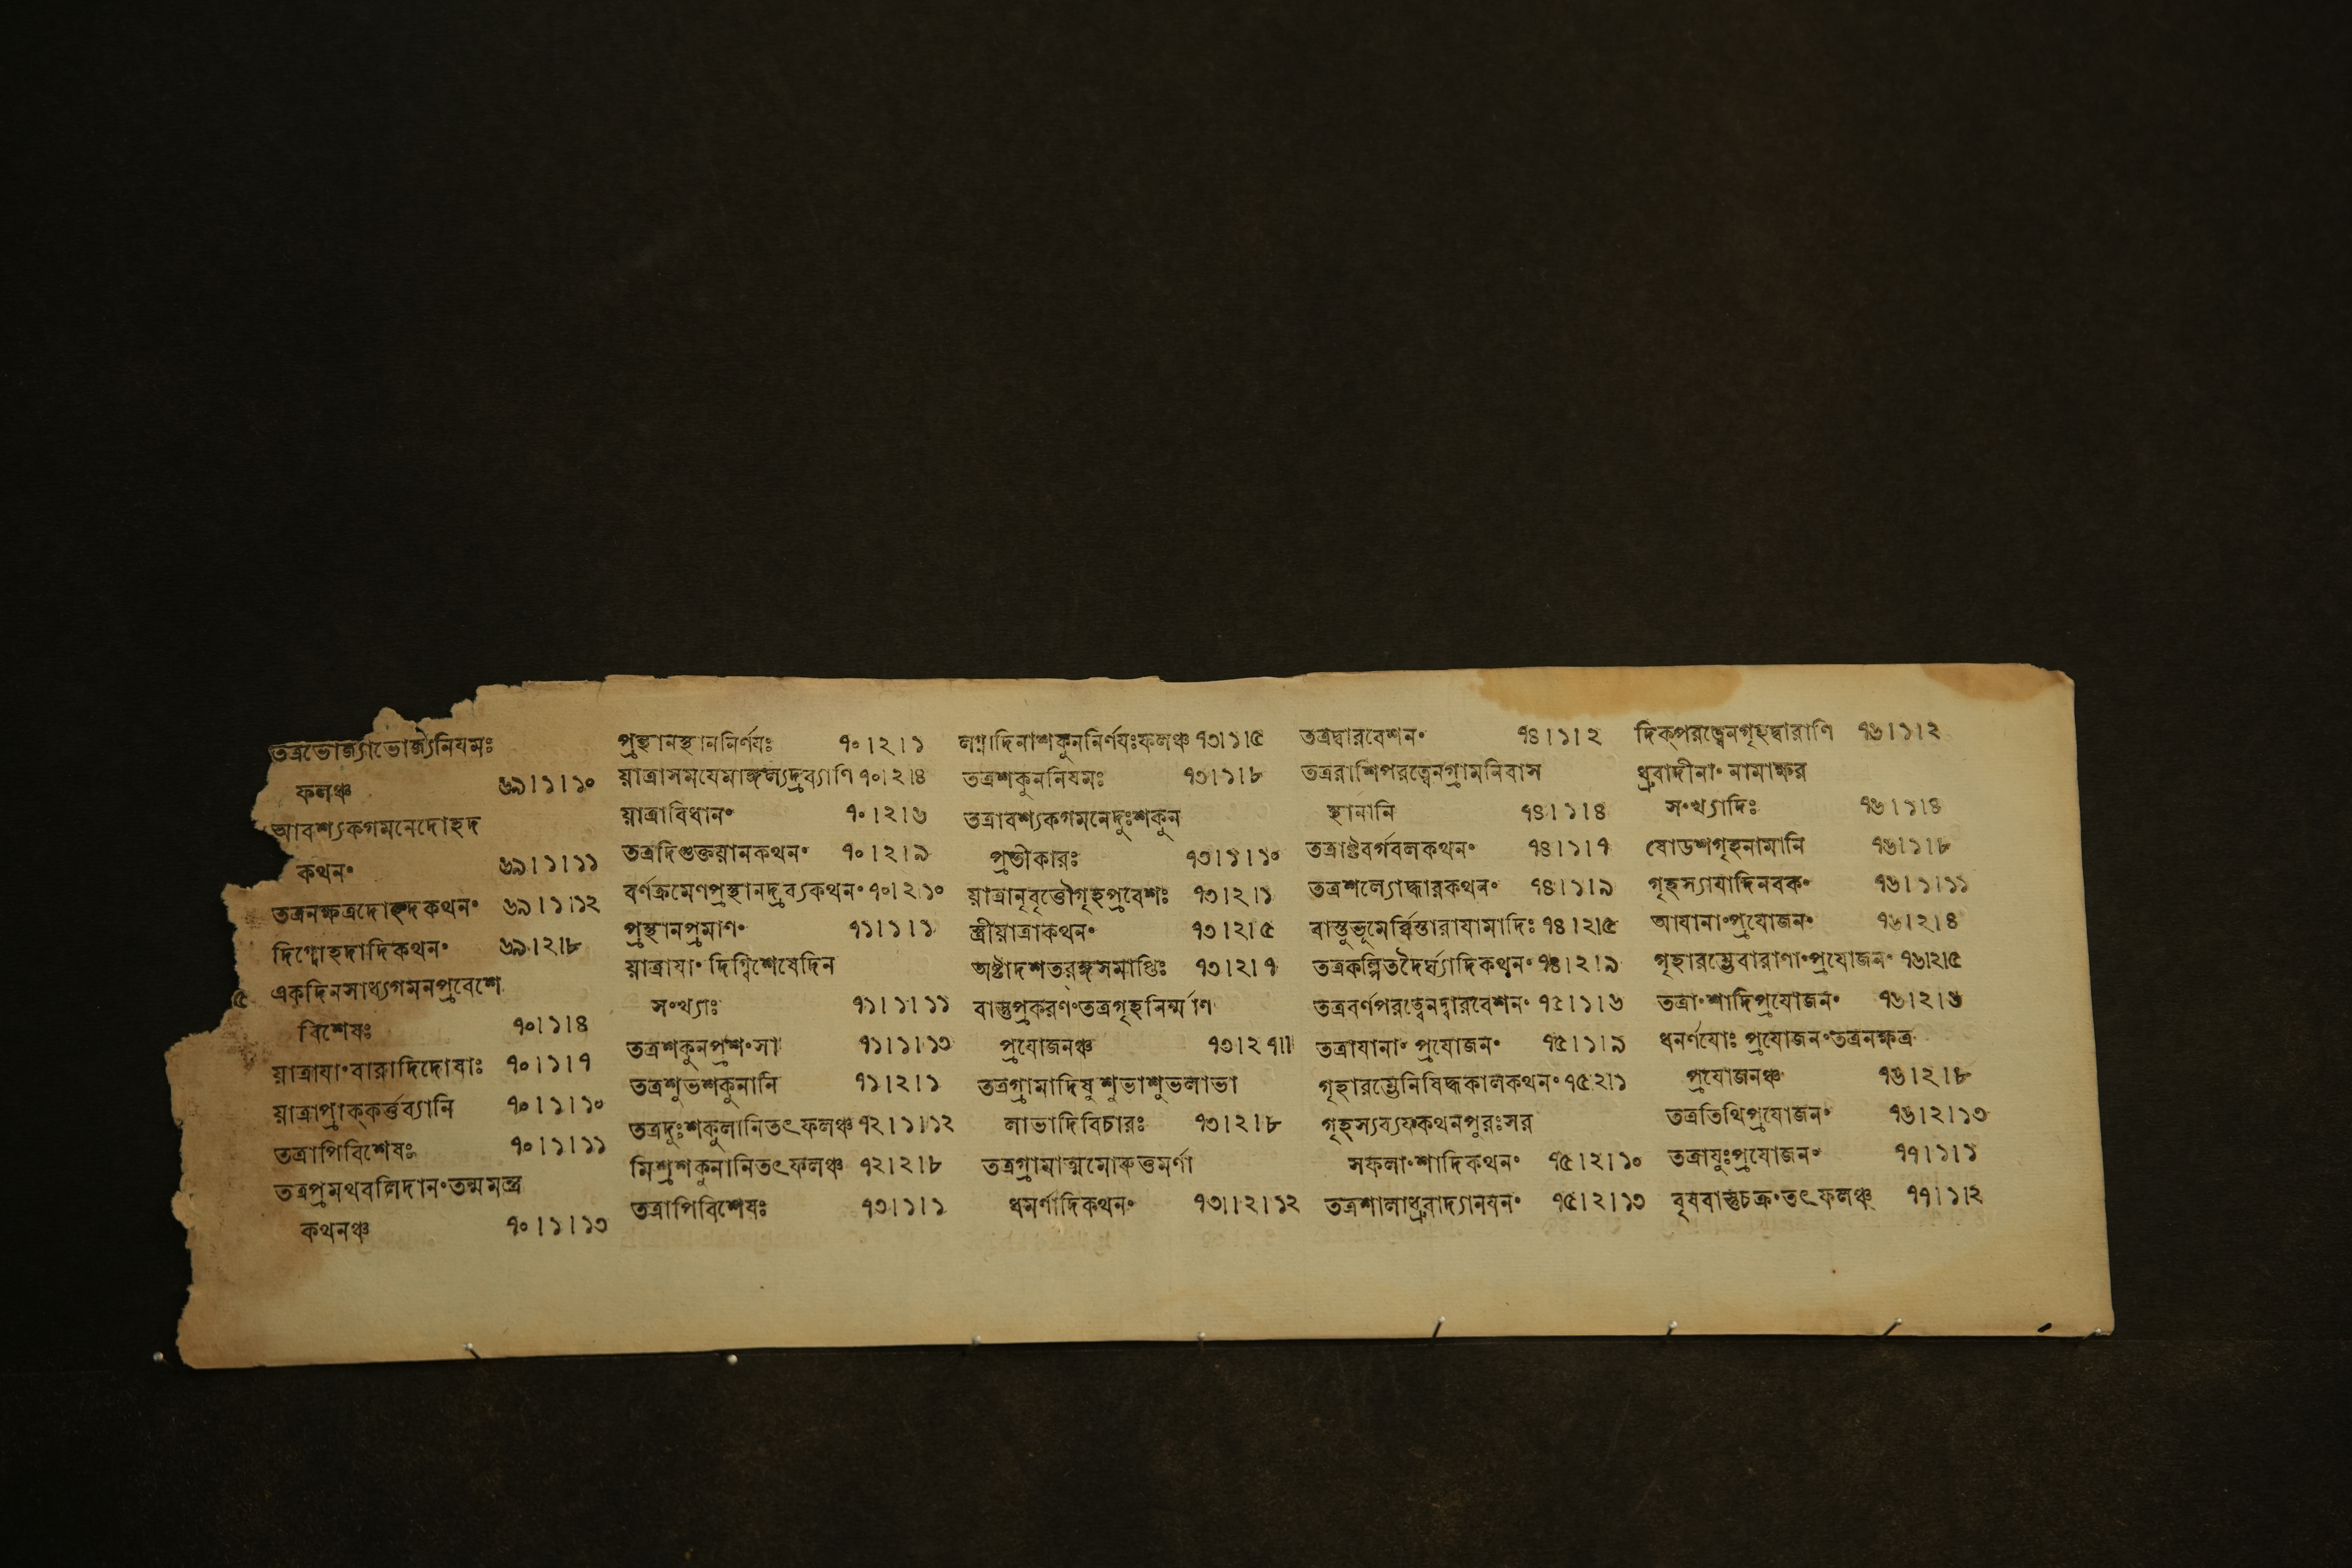 তত্রভোজ্যাভোজ্যনিযমঃ
ফলঞ্চ ৬৯।১।১০
আবশ্যকগমনেদোহদ
কথনং ৬৯।১।১১
তত্রনক্ষত্রদোহদকথনং ৬৯।১।১২
দিগ্দোহদাদিকথনং ৬৯।২।৮
৫ একদিনসাধ্যগমনপ্রবেশে
বিশেষঃ ৭০।১।৪
যাত্রাযাংবারাদিদোষাঃ ৭০।১।৭
যাত্রাপ্রাক্কর্ত্তব্যানি ৭০।১।১০
তত্রাপিবিশেষঃ ৭০।১।১১
তত্রপ্রমথবলিদানংতন্মমন্ত্র
কথনঞ্চ ৭০।১।১৩
প্রস্থানস্থাননির্ণযঃ ৭০।২।১
যাত্রাসমযেমাঙ্গল্যদ্রব্যাণি ৭০।২।৪
যাত্রাবিধানং ৭০।২।৬
তত্রদিগুক্তযানকথনং ৭০।২।৯
বর্ণক্রমেণপ্রস্থানদ্রব্যকথনং ৭০।২।১০
প্রস্থানপ্রমাণং ৭১।১।১
যাত্রাযাং দিগ্বিশেষেদিন
সংখ্যাঃ ৭১।১।১১
তত্রশকুনপ্রশংসা ৭১।১।১৩
তত্রশুভশকুনানি ৭১।২।১
তত্রদুঃশকুলানিতৎফলঞ্চ ৭২।১।১২
মিশ্রশকুনানিতৎফলঞ্চ ৭২।২।৮
তত্রাপিবিশেষঃ ৭৩।১।১
লগ্নাদিনাশকুননির্ণযঃফলঞ্চ ৭৩।১।৫
তত্রশকুননিযমঃ ৭৩।১।৮
তত্রাবশ্যকগমনেদুঃশকুন
প্রতীকারঃ ৭৩।১।১০
যাত্রানৃবৃত্তৌগৃহপ্রবেশঃ ৭৩।২।১
স্ত্রীযাত্রাকথনং ৭৩।২।৫
অষ্টাদশতরঙ্গসমাপ্তিঃ ৭৩।২।৭
বাস্তুপ্রকরণংতত্রগৃহনির্ম্মাণ
প্রযোজনঞ্চ ৭৩।২ ৭॥
তত্রগ্রামাদিষু শুভাশুভলাভা
লাভাদিবিচারঃ ৭৩।২।৮
তত্রগ্রামাত্মমোরুত্তমর্ণা
ধমর্ণাদিকথনং ৭৩।২।১২
তত্রদ্বারবেশনং ৭৪।১।২
তত্ররাশিপরত্বেনগ্রামনিবাস
স্থানানি ৭৪।১।৪
তত্রাষ্টবর্গবলকথনং ৭৪।১।৭
তত্রশল্যোদ্ধারকথনং ৭৪।১।৯
বাস্তুভূমের্ব্বিস্তারাযামাদিঃ ৭৪।২।৫
তত্রকল্পিতদৈর্ঘ্যাদিকথনং ৭৪।২।৯
তত্রবর্ণপরত্বেনদ্বারবেশনং ৭৫।১।৬
তত্রাযানাং প্রযোজনং ৭৫।১।৯
গৃহারম্ভেনিষিদ্ধকালকথনং ৭৫।২।১
গৃহস্যব্যযকথনপুরঃসর
সফলাংশাদিকথনং ৭৫।২।১০
তত্রশালাধ্রুবাদ্যানযনং ৭৫।২।১৩
দিক্পরত্বেনগৃহদ্বারাণি ৭৬।১।২
ধ্রুবাদীনাং নামাক্ষর
সংখ্যাদিঃ ৭৬।১।৪
ষোডশগৃহনামানি ৭৬।১।৮
গৃহস্যাযাদিনবকং ৭৬।১।১১
আযানাংপ্রযোজনং ৭৬।২।৪
গৃহারম্ভেবারাণাংপ্রযোজনং ৭৬।২।৫
তত্রাংশাদিপ্রযোজনং ৭৬।২।৬
ধনর্ণযোঃ প্রযোজনংতত্রনক্ষত্র
প্রযোজনঞ্চ ৭৬।২।৮
তত্রতিথিপ্রযোজনং ৭৬।২।১৩
তত্রাযুঃপ্রযোজনং ৭৭।১।১
বৃষবাস্তুচক্রংতৎফলঞ্চ ৭৭।১।২